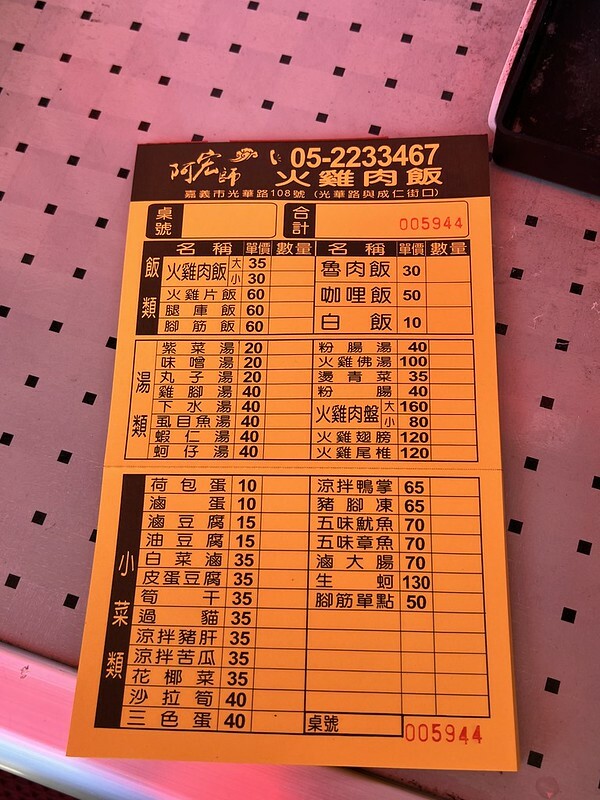 阿宏師 05-2233467
火雞肉飯
嘉義市光華路108號 (光華路與成仁街口)
桌號 合計 005944
名稱 單價 數量 名稱 單價 數量
飯類
火雞肉飯 大 35 小 30
火雞片飯 60
腿庫飯 60
腳筋飯 60
魯肉飯 30
咖哩飯 50
白飯 10
湯類
紫菜湯 20
味噌湯 20
丸子湯 20
雞腳湯 40
下水湯 40
虱目魚湯 40
蝦仁湯 40
蚵仔湯 40
粉腸湯 40
火雞佛湯 100
燙青菜 35
粉腸 40
火雞肉盤 大 160 小 80
火雞翅膀 120
火雞尾椎 120
小菜類
荷包蛋 10
滷蛋 10
滷豆腐 15
油豆腐 15
白菜滷 35
皮蛋豆腐 35
筍干 35
過貓 35
涼拌豬肝 35
涼拌苦瓜 35
花椰菜 35
沙拉筍 40
三色蛋 40
涼拌鴨掌 65
豬腳凍 65
五味魷魚 70
五味章魚 70
滷大腸 70
生蚵 130
腳筋單點 50
桌號 005944